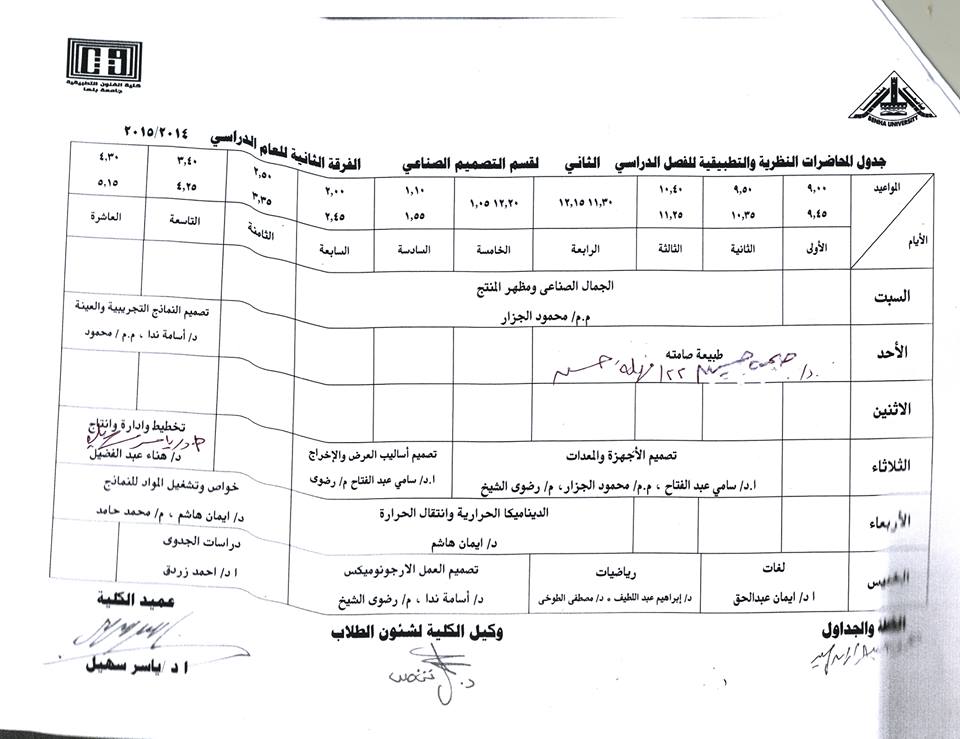 كلية الفنون التطبيقية
جامعة بنها
BENHA UNIVERSITY
جدول المحاضرات النظرية والتطبيقية للفصل الدراسي الثاني لقسم التصميم الصناعي الفرقة الثانية للعام الدراسي ٢٠١٥/٢٠١٤
المواعيد ٩,٠٠ ٩,٥٠ ١٠,٤٠ ١١,٣٠ ١٢,٢٠ ١,١٠ ٢,٠٠ ٢,٥٠ ٣,٤٠ ٤,٣٠
٩,٤٥ ١٠,٣٥ ١١,٢٥ ١٢,١٥ ١,٠٥ ١,٥٥ ٢,٤٥ ٣,٣٥ ٤,٢٥ ٥,١٥
الأيام الأولى الثانية الثالثة الرابعة الخامسة السادسة السابعة الثامنة التاسعة العاشرة
السبت
الجمال الصناعى ومظهر المنتج
م.م/ محمود الجزار
تصميم النماذج التجريبية والعينة
د/ أسامة ندا ، م.م/ محمود
الأحد
طبيعة صامته
الاثنين
تخطيط وادارة وانتاج
د/ هناء عبد الفضيل
الثلاثاء
تصميم الأجهزة والمعدات
ا.د/ سامي عبد الفتاح ، م.م/ محمود الجزار، م/ رضوى الشيخ
تصميم أساليب العرض والإخراج
ا.د/ سامي عبد الفتاح م/ رضوى
خواص وتشغيل المواد للنماذج
د/ ايمان هاشم ، م/ محمد حامد
الأربعاء
الديناميكا الحرارية وانتقال الحرارة
د/ ايمان هاشم
دراسات الجدوى
ا د/ احمد زردق
لغات
ا د/ ايمان عبدالحق
رياضيات
د/ إبراهيم عبد اللطيف + د/ مصطفى الطوخى
تصميم العمل الارجونوميكس
د/ أسامة ندا ، م/ رضوى الشيخ
والجداول
وكيل الكلية لشئون الطلاب
عميد الكلية
ا د/ ياسر سهيل